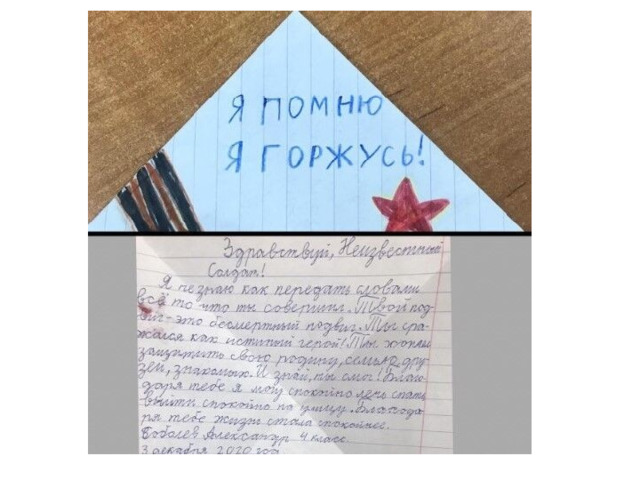 Я ПОМНЮ
Я ГОРЖУСЬ!
Здравствуй, Неизвестный
Солдат!
Я не знаю как передать словами
всё то что ты совершил. Твой под-
виг - это бессмертный подвиг. Ты сра-
жался как истиный герой! Ты хотел
защитить свою родину, семью, дру-
зей, знакомых. И знай, ты смог! Благо-
даря тебе я могу спокойно лечь спать,
выйти спокойно на улицу. Благода-
ря тебе жизнь стала спокойнее.
Александр 4 класс
3 декабря 2020 год